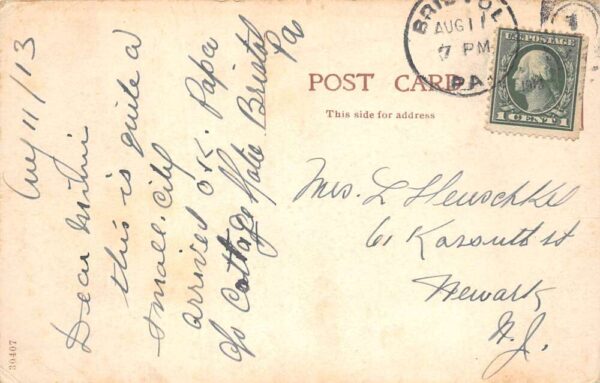 Aug 11/13
Dear Mimi
this is quite a
small city
arrived O.K. Papa
c/o Cottage Hotel Bristol
Pa
POST CARD
This side for address
BRISTOL
AUG 11
7 PM
1913
PA.
U.S. POSTAGE
1 CENT 1
Mrs. L Heuschkel
61 Kossuth st
Newark,
N.J.
30407